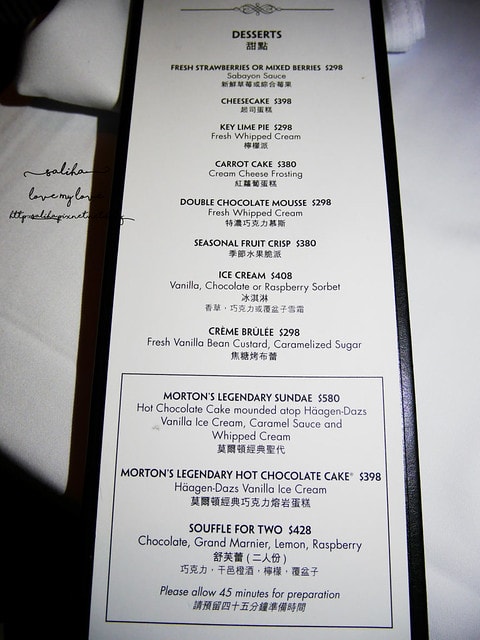 DESSERTS
甜點
FRESH STRAWBERRIES OR MIXED BERRIES $298
Sabayon Sauce
新鮮草莓或綜合莓果
CHEESECAKE $398
起司蛋糕
KEY LIME PIE $298
Fresh Whipped Cream
檸檬派
CARROT CAKE $380
Cream Cheese Frosting
紅蘿蔔蛋糕
DOUBLE CHOCOLATE MOUSSE $298
Fresh Whipped Cream
特濃巧克力慕斯
SEASONAL FRUIT CRISP $380
季節水果脆派
ICE CREAM $408
Vanilla, Chocolate or Raspberry Sorbet
冰淇淋
香草，巧克力或覆盆子雪霜
CRÈME BRÛLÉE $298
Fresh Vanilla Bean Custard, Caramelized Sugar
焦糖烤布蕾
MORTON'S LEGENDARY SUNDAE $580
Hot Chocolate Cake mounded atop Häagen-Dazs
Vanilla Ice Cream, Caramel Sauce and
Whipped Cream
莫爾頓經典聖代
MORTON'S LEGENDARY HOT CHOCOLATE CAKE® $398
Häagen-Dazs Vanilla Ice Cream
莫爾頓經典巧克力熔岩蛋糕
SOUFFLE FOR TWO $428
Chocolate, Grand Marnier, Lemon, Raspberry
舒芙蕾 (二人份)
巧克力，干邑橙酒，檸檬，覆盆子
Please allow 45 minutes for preparation
請預留四十五分鐘準備時間
saliha
love my love